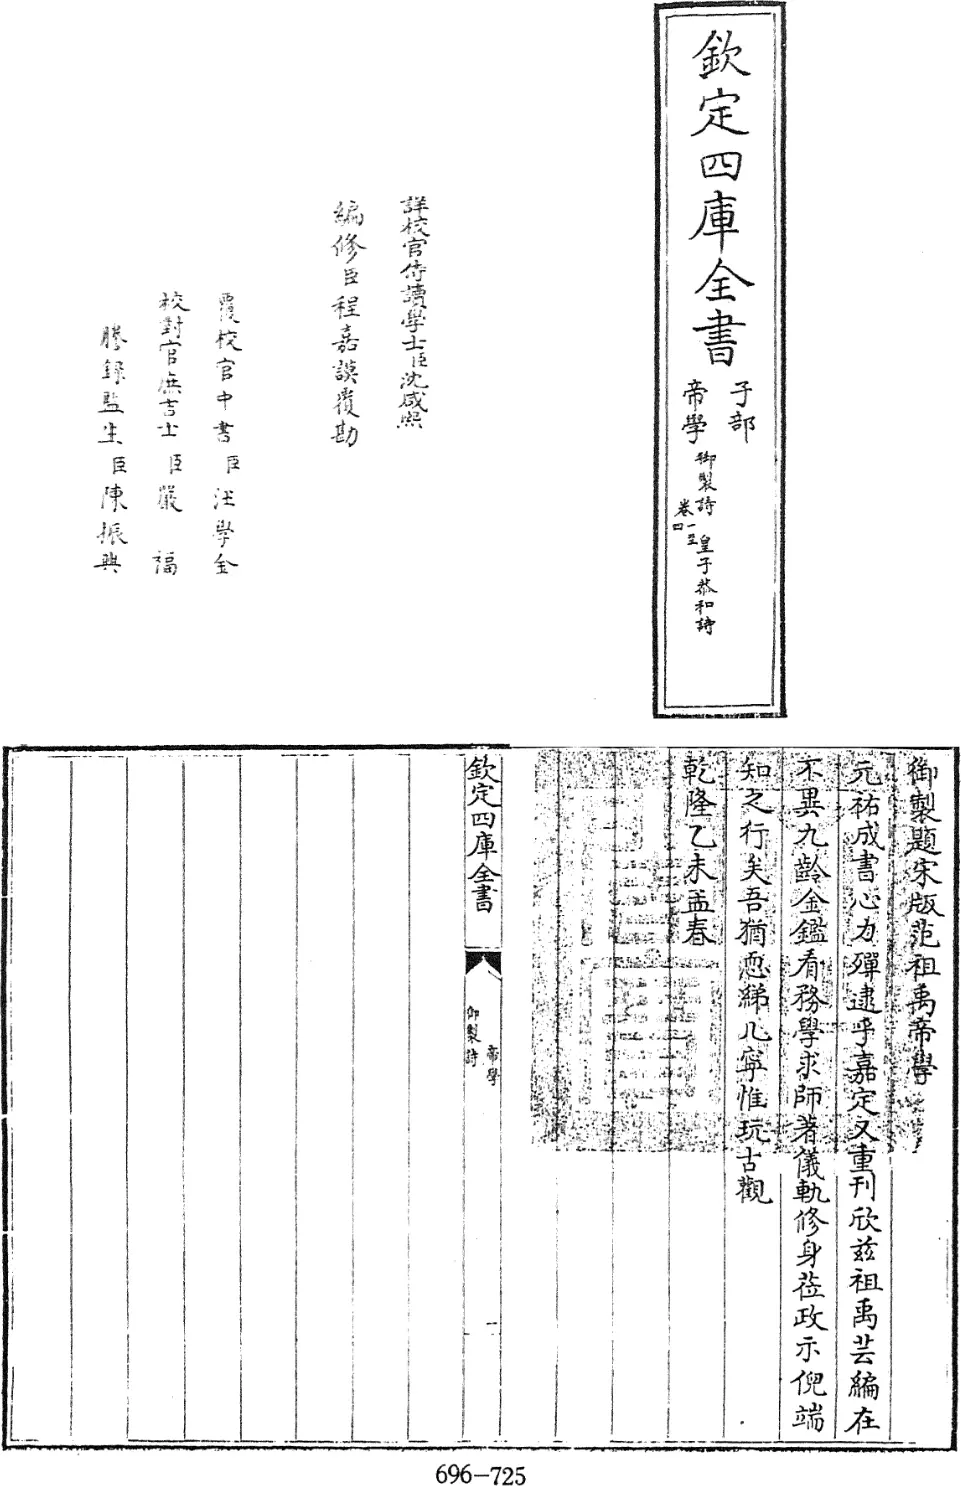 欽定四庫全書
子部
帝學
御製詩 皇子恭和詩
卷一至四
詳校官侍讀學士臣沈咸熙
編修臣程嘉謨覆勘
覆校官中書臣汪學金
校對官庶吉士臣嚴福
謄錄監生臣陳振興
御製題宋版范祖禹帝學
元祐成書心力殫逮乎嘉定又重刊欣兹祖禹芸編在
不異九齡金鑑看務學求師著儀軌修身莅政示倪端
知之行矣吾猶恧綈几寧惟玩古觀
乾隆乙未孟春
欽定四庫全書
帝學
御製詩
一
696-725